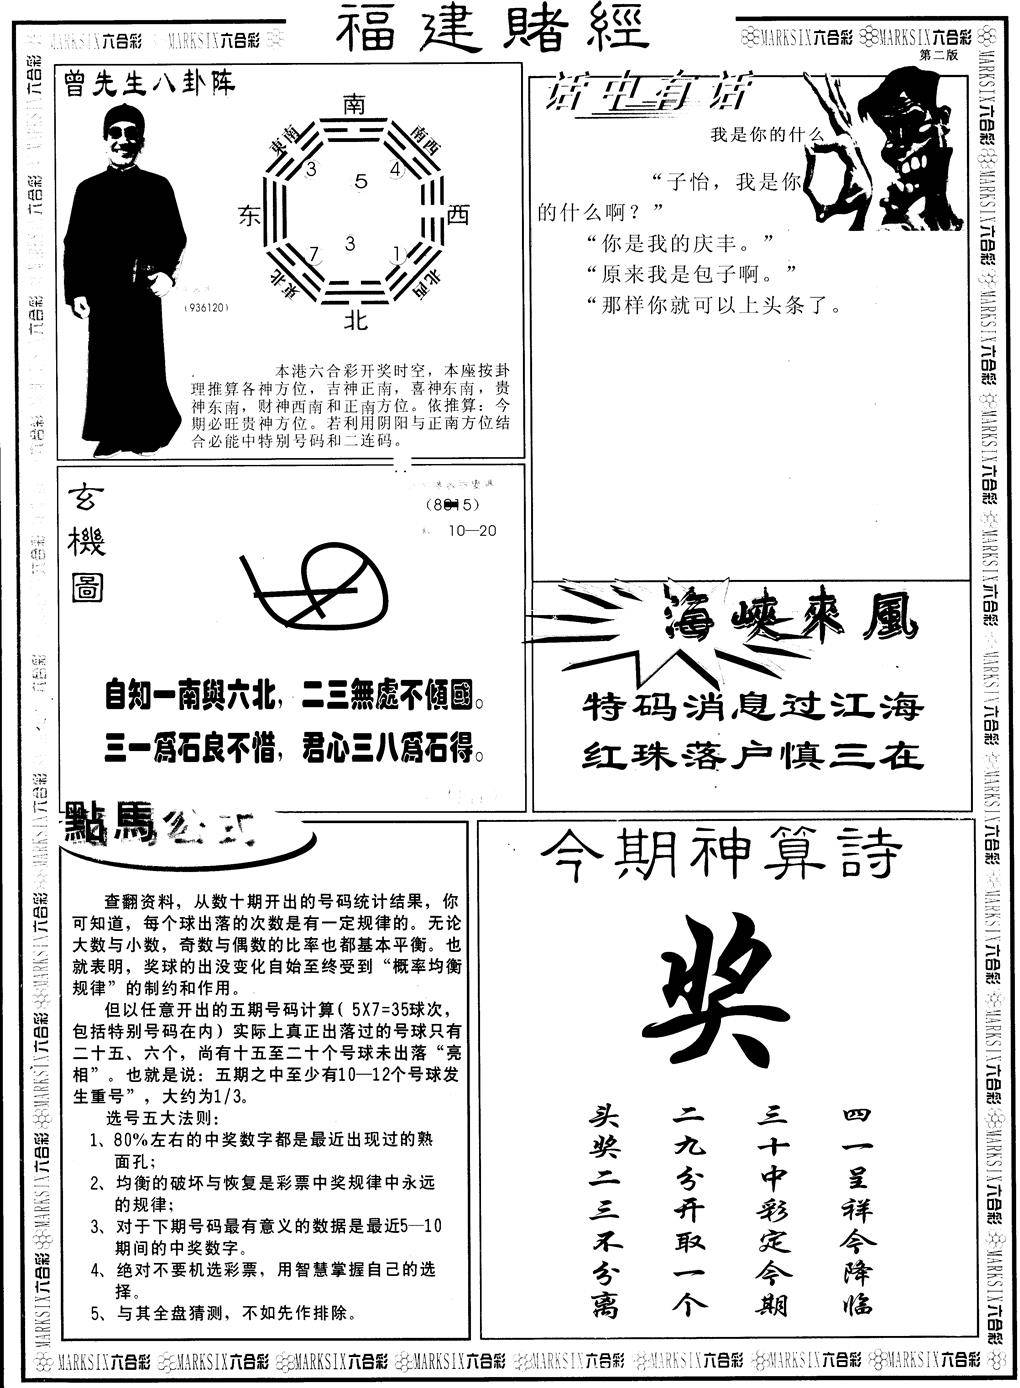 福建賭經
MARKSIX六合彩 MARKSIX六合彩
MARKSIX六合彩 MARKSIX六合彩
第二版
曾先生八卦阵
南
東南
南西
3
4
5
东
西
3
7
1
東北
北西
北
(936120)
本港六合彩开奖时空，本座按卦
理推算各神方位，吉神正南，喜神东南，贵
神东南，财神西南和正南方位。依推算：今
期必旺贵神方位。若利用阴阳与正南方位结
合必能中特别号码和二连码。
话中有话
我是你的什么
“子怡，我是你
的什么啊？”
“你是我的庆丰。”
“原来我是包子啊。”
“那样你就可以上头条了。
玄機圖
10—20
自知一南與六北，二三無處不傾國。
三一爲石良不惜，君心三八爲石得。
海峽來風
特码消息过江海
红珠落户慎三在
點馬公式
查翻资料，从数十期开出的号码统计结果，你
可知道，每个球出落的次数是有一定规律的。无论
大数与小数，奇数与偶数的比率也都基本平衡。也
就表明，奖球的出没变化自始至终受到“概率均衡
规律”的制约和作用。
但以任意开出的五期号码计算( 5X7=35球次，
包括特别号码在内) 实际上真正出落过的号球只有
二十五、六个，尚有十五至二十个号球未出落“亮
相”。也就是说：五期之中至少有10—12个号球发
生重号”，大约为1/3。
选号五大法则：
1、80%左右的中奖数字都是最近出现过的熟
面孔；
2、均衡的破坏与恢复是彩票中奖规律中永远
的规律；
3、对于下期号码最有意义的数据是最近5—10
期间的中奖数字。
4、绝对不要机选彩票，用智慧掌握自己的选
择。
5、与其全盘猜测，不如先作排除。
今期神算詩
奖
头奖二三不分离
二九分开取一个
三十中彩定今期
四一呈祥今降临
MARKSIX六合彩 MARKSIX六合彩 MARKSIX六合彩 MARKSIX六合彩 MARKSIX六合彩 MARKSIX六合彩 MARKSIX六合彩 MARKSIX六合彩